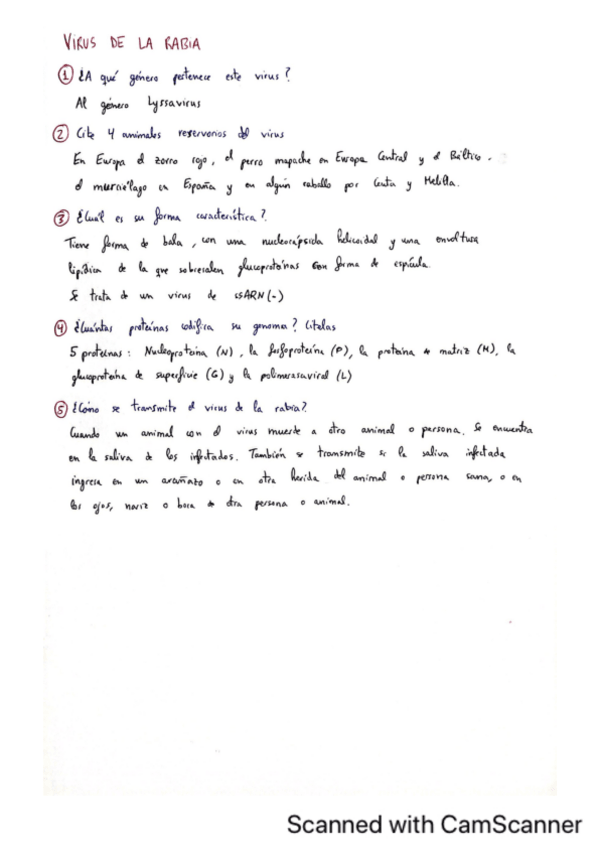 VIRUS DE LA RABIA
1 ¿A qué género pertenece este virus?
Al género Lyssavirus
2 Cite 4 animales reservorios del virus
En Europa el zorro rojo, el perro mapache en Europa Central y el Báltico.
el murciélago en España y en algún caballo por Ceuta y Melilla.
3 ¿Cuál es su forma característica?
Tiene forma de bala, con una nucleocápsida helicoidal y una envoltura
lipídica de la que sobresalen glucoproteínas con forma de espícula.
Se trata de un virus de ssARN(-)
4 ¿Cuántas proteínas codifica su genoma? Cítelas
5 proteínas: Nucleoproteína (N), la fosfoproteína (P), la proteína de matriz (M), la
glucoproteína de superficie (G) y la polimerasa viral (L)
5 ¿Cómo se transmite el virus de la rabia?
Cuando un animal con el virus muerde a otro animal o persona. Se encuentra
en la saliva de los infectados. También se transmite si la saliva infectada
ingresa en un arañazo o en otra herida del animal o persona sana, o en
los ojos, nariz o boca de otra persona o animal.
Scanned with CamScanner